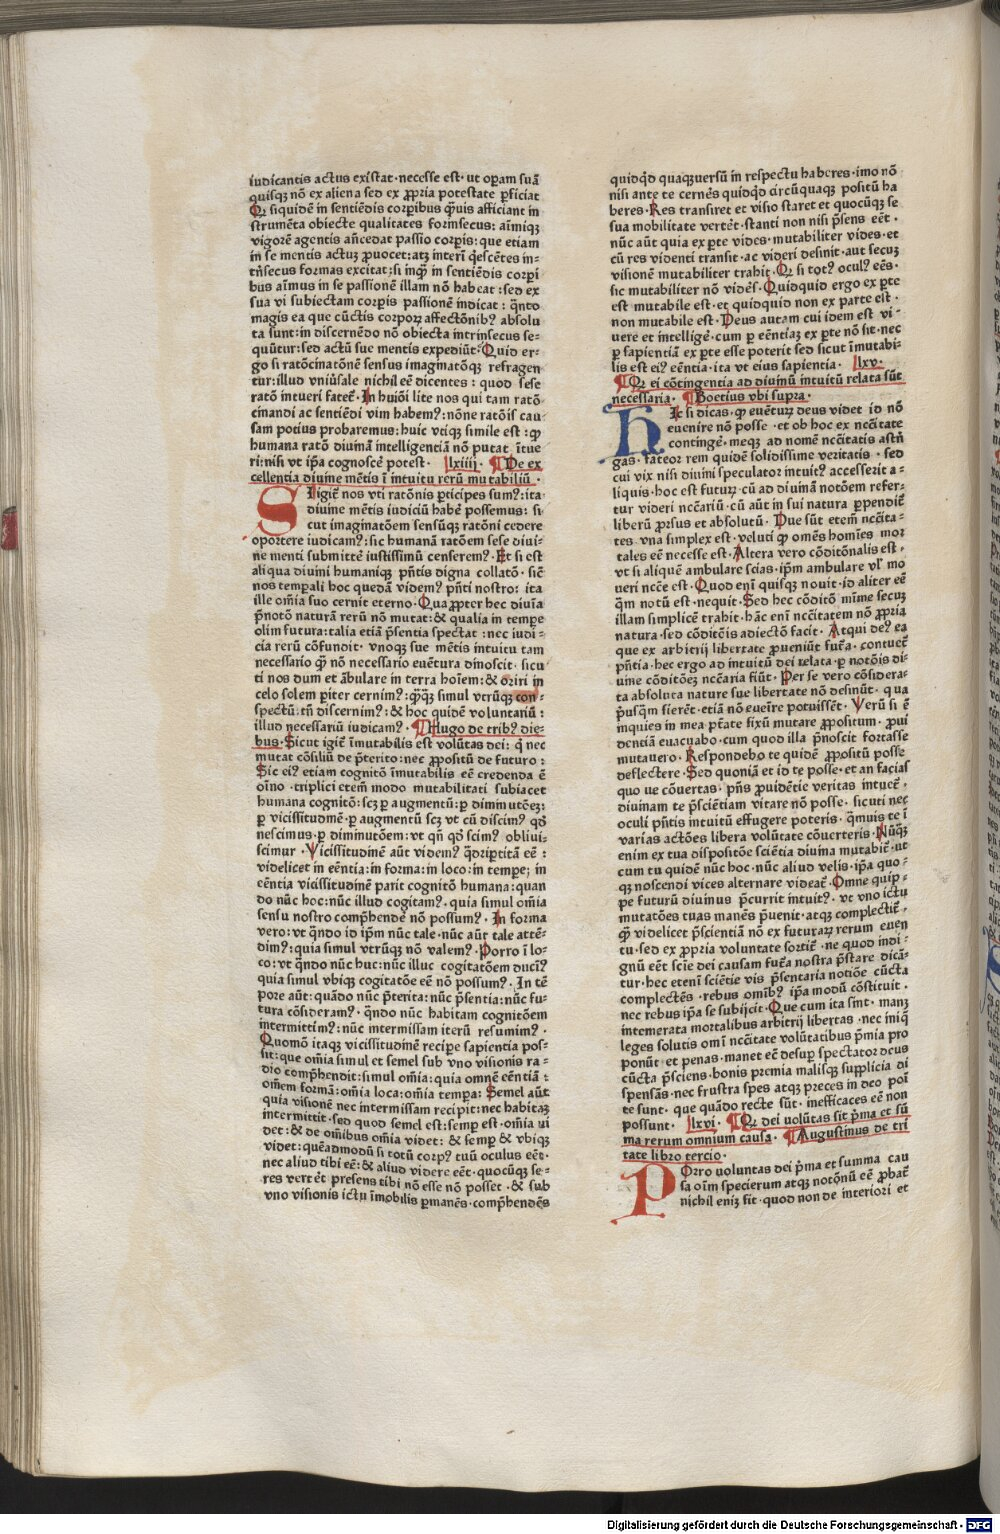 iudicantis actus existat·necesse est·ut oꝑam suā
quisqꝫ nō ex aliena sed ex ꝓpria potestate ꝑficiat
Qꝫ siquidē in sentiēdis corꝑibus qͣuis afficiant in
strumēta obiecte qualitates forinsecus: aīmiqꝫ
vigorē agentis añcedat passio corꝑis: que etiam
in se mentis actuꝫ ꝓuocet: atqꝫ interī q̇escētes in-
tñsecus formas excitat; si inqͣ in sentiēdis corꝑi
bus aīmus in se passionē illam nō habeat: sed ex
sua vi subiectam corꝑis passionē indicat: qͣnto
magis ea que cūctis corporꝫ affectōnibꝰ absolu
ta sunt: in discernēdo nō obiecta intrinsecus se-
quūtur: sed actū sue mentis expediūt· Quid er-
go si ratōcinatōnē sensus imaginatōqꝫ refragen
tur: illud vniu̇sale nichil eē dicentes: quod sese
ratō intueri fateᷣ· In huiōi lite nos qui tam ratō
cinandi ac sentiēdi vim habemꝰ: nōne ratōis cau
sam potius probaremus: huic vtiqꝫ simile est: qꝫ
humana ratō diuinā intelligentiā nō putat ītue
ri: nisi vt ip̄a cognosceᷣ potest· lxiiij· ¶ De ex
cellentia diuine mētis ī intuitu rerū mutabiliū·
SIigiᷣ nos vti ratōnis ꝑticipes sumꝰ: ita
diuine mētis iudiciū habeᷣ possemus: si
cut imaginatōem sensūqꝫ ratōni cedere
oportere iudicamꝰ: sic humanā ratōem sese diui-
ne menti submitteᷣ iustissimū censeremꝰ· Et si est
aliqua diuini humaniqꝫ p̄ntis digna collatō· sicᷣ
nos temꝑali hoc quedā videmꝰ p̄nti nostro: ita
ille om̄ia suo cernit eterno· Qua ꝓpter hec diuīa
p̄notō naturā rerū nō mutat: & qualia in tempe
olim futura: talia etiā p̄sentia spectat: nec iudi-
cia rerū cōfundit· vnoqꝫ sue mētis intuitu tam
necessario qͣ nō necessario euētura dinoscit· sicu
ti nos dum et ābulare in terra hoīem: & oriri in
celo solem ꝑiter cernimꝰ: qͣqꝫ simul vtrūqꝫ con-
spectū: tn̄ discernimꝰ: & hoc quidē voluntariū:
illud necessariū iudicamꝰ· ¶ Hugo de tribꝰ die-
bus· Sicut igiᷣ īmutabilis est volūtas dei: q̇ nec
mutat cōsiliū de p̄terito: nec ꝓpositū de futuro:
Sic eiꝰ etiam cognitō īmutabilis eē credenda ē
oīno· triplici etem̄ modo mutabilitati subiacet
humana cognitō: scꝫ ꝑ augmentū: ꝑ diminutōeꝫ:
ꝑ vicissitudinē· ꝑ augmentū scꝫ vt cū discimꝰ qd̄
nescimus· ꝑ diminutōem: vt qn̄ qd̄ scimꝰ obliui-
scimur· Vicissitudinē aūt videmꝰ qͣdriꝑtitā eē:
videlicet in eēntia: in forma: in loco: in tempe; in
eēntia vicissitudinē parit cognitō humana: quan
do nūc hoc: nūc illud cogitamꝰ· quia simul om̄ia
sensu nostro comp̄hendeᷣ nō possumꝰ· In forma
vero: vt qͣndo id ip̄m nūc tale· nūc aūt tale attē-
dimꝰ: quia simul vtrūqꝫ nō valemꝰ· Porro ī lo-
co: vt qͣndo nūc huc: nūc illuc cogitatōem ducīꝰ
quia simul vbiqꝫ cogitatōe eē nō possumꝰ· In tē
pore aūt: quādo nūc p̄terita: nūc p̄sentia: nūc fu-
tura cōsideramꝰ· qͣndo nūc habitam cognitōem
intermittimꝰ: nūc intermissam iterū resumimꝰ·
Quomō itaqꝫ vicissitudinē recipeᷣ sapientia pos-
sit: que om̄ia simul et semel sub vno visionis ra-
dio comp̄hendit: simul om̄ia: quia omnē eēntiā:
om̄em formā: om̄ia loca: om̄ia tempa: Semel aūt
quia visionē nec intermissam recipit: nec habitaꝫ
intermittit· sed quod semel est: semꝑ est· om̄ia vi
det: & de om̄ibus om̄ia videt: & semꝑ & vbiqꝫ
videt: quēadmodū si totū corpꝰ tuū oculus eēt·
nec aliud tibi eē: & aliud videre eēt· quocūqꝫ se-
res verteᷣt presens tibi nō esse nō posset· & sub
vno visionis ictu īmobilis ꝑmanēs· comp̄hendēs
quidqͥd quaqꝫuersū in respectu haberes· imo nō
nisi ante te cernēs quidqͥd circūquaqꝫ positū ha
beres· Res transiret et visio staret et quocūqꝫ se
sua mobilitate verteᷣt· stanti non nisi p̄sens eēt·
nūc aūt quia ex ꝑte vides· mutabiliter vides· et
cū res videnti transit· ac videri desinit· aut secuꝫ
visionē mutabiliter trahit· Qꝫ si totꝰ oculꝰ eēs·
sic mutabiliter nō videᷣs· Quidquid ergo ex ꝑte
est mutabile est· et quidquid non ex parte est·
non mutabile est· Deus autam cui idem est vi-
uere et intelligeᷣ· cum ꝑ eēntiaꝫ ex ꝑte nō sit· nec
ꝑ sapientiā ex ꝑte esse poterit sed sicut īmutabi-
lis est eiꝰ eēntia· ita vt eius sapientia· lxv·
¶ Qꝫ ei cōtingentia ad diuinū intuitū relata sūt
necessaria· ¶ Boetius vbi supra·
HIc si dicas· qꝫ euēturꝫ deus videt id nō
euenire nō posse· et ob hoc ex ncc̄itate
contingeᷣ· meqꝫ ad nomē ncc̄itatis astrī
gas· fateor rem quidē solidissime veritatis· sed
cui vix nisi diuini speculator intuitꝰ accesserit a-
liquis· hoc est futurꝫ· cū ad diuinā notōem refer-
tur videri ncc̄ariū· cū aūt in sui natura ꝑpendiᷣ
liberū ꝓrsus et absolutū· Due sūt etem̄ ncc̄ita-
tes vna simplex est· veluti qꝫ omēs homīes mor
tales eē necesse est· Altera vero cōditōnalis est·
vt si aliquē ambulare scias· ip̄m ambulare vl̓ mo
ueri ncc̄e est· Quod enī quisqꝫ nouit· id aliter eē
qͣm notū est· nequit· Sed hec cōditō mīme secuꝫ
illam simplicē trahit· hāc enī ncc̄itatem nō ꝓpria
natura· sed cōditōis adiectō facit· Atqui deꝰ ea
que ex arbitrij libertate ꝓueniūt futᷓa· contueᷣ
p̄ntia· hec ergo ad intuitū dei relata· ꝑ notōis di-
uine cōditōeꝫ ncc̄aria fiūt· Per se vero cōsidera-
ta absoluta nature sue libertate nō desinūt· qua
pͥusqͣm fierēt· etiā nō eueīre potuissēt· Verū si ē
inquies in mea pt̄ate fixū mutare ꝓpositum· ꝓui
dentiā euacuabo· cum quod illa p̄noscit fortasse
mutauero· Respondebo te quidē ꝓpositū posse
deflectere· Sed quoniā et id te posse· et an facias
quo ue cōuertas· p̄ns ꝓuidētie veritas intueᷣ·
diuinam te p̄sciētiam vitare nō posse· sicuti nec
oculi p̄ntis intuitū effugere poteris· qͣmuis te ī
varias actōes libera volūtate cōuerteris· Nūqꝫ
enim ex tua dispositōe sciētia diuina mutabiᷣt· ut
cum tu quidē nūc hoc· nūc aliud velis· ip̄a quo-
qꝫ noscendi vices alternare videaᷣt· Omne quip-
pe futurū diuinus p̄currit intuitꝰ· vt vno ictu
mutatōes tuas manēs p̄uenit· atqꝫ complectiᷣt·
qͣ videlicet p̄scientiā nō ex futuraꝫ rerum euen
tu· sed ex ꝓpria voluntate sortiᷣt· ne quod indi-
gnū eēt scīe dei causam futᷓa nostra p̄stare dicā-
tur· hec etenī sciētie vis p̄sentaria notiōe cūcta
complectēs· rebus om̄ibꝰ ip̄a modū cōstituit·
nec rebus ip̄a se subijcit· Que cum ita sint· manꝫ
intemerata mortalibus arbitrij libertas· nec iniqͥ
leges solutis om̄i ncc̄itate volūtatibus p̄mia pro
ponūt et penas· manet eē desuꝑ spectator deus
cūcta p̄sciens· bonis premia malisqꝫ supplicia di
spensās· nec frustra spes atqꝫ preces in deo poī
te sunt· que quādo recte sūt· inefficaces eē non
possunt· lxvi· ¶ Qꝫ dei volūtas sit pͥma et sū
ma rerum omnium causa· ¶ Augustinus de tri
tate libro tercio·
POrro voluntas dei pͥma et summa cau
sa oīm specierum atqꝫ notōnū eē ꝓbaᷣt
nichil eniꝫ fit· quod non de interiori et
Digitalisierung gefördert durch die Deutsche Forschungsgemeinschaft - DFG